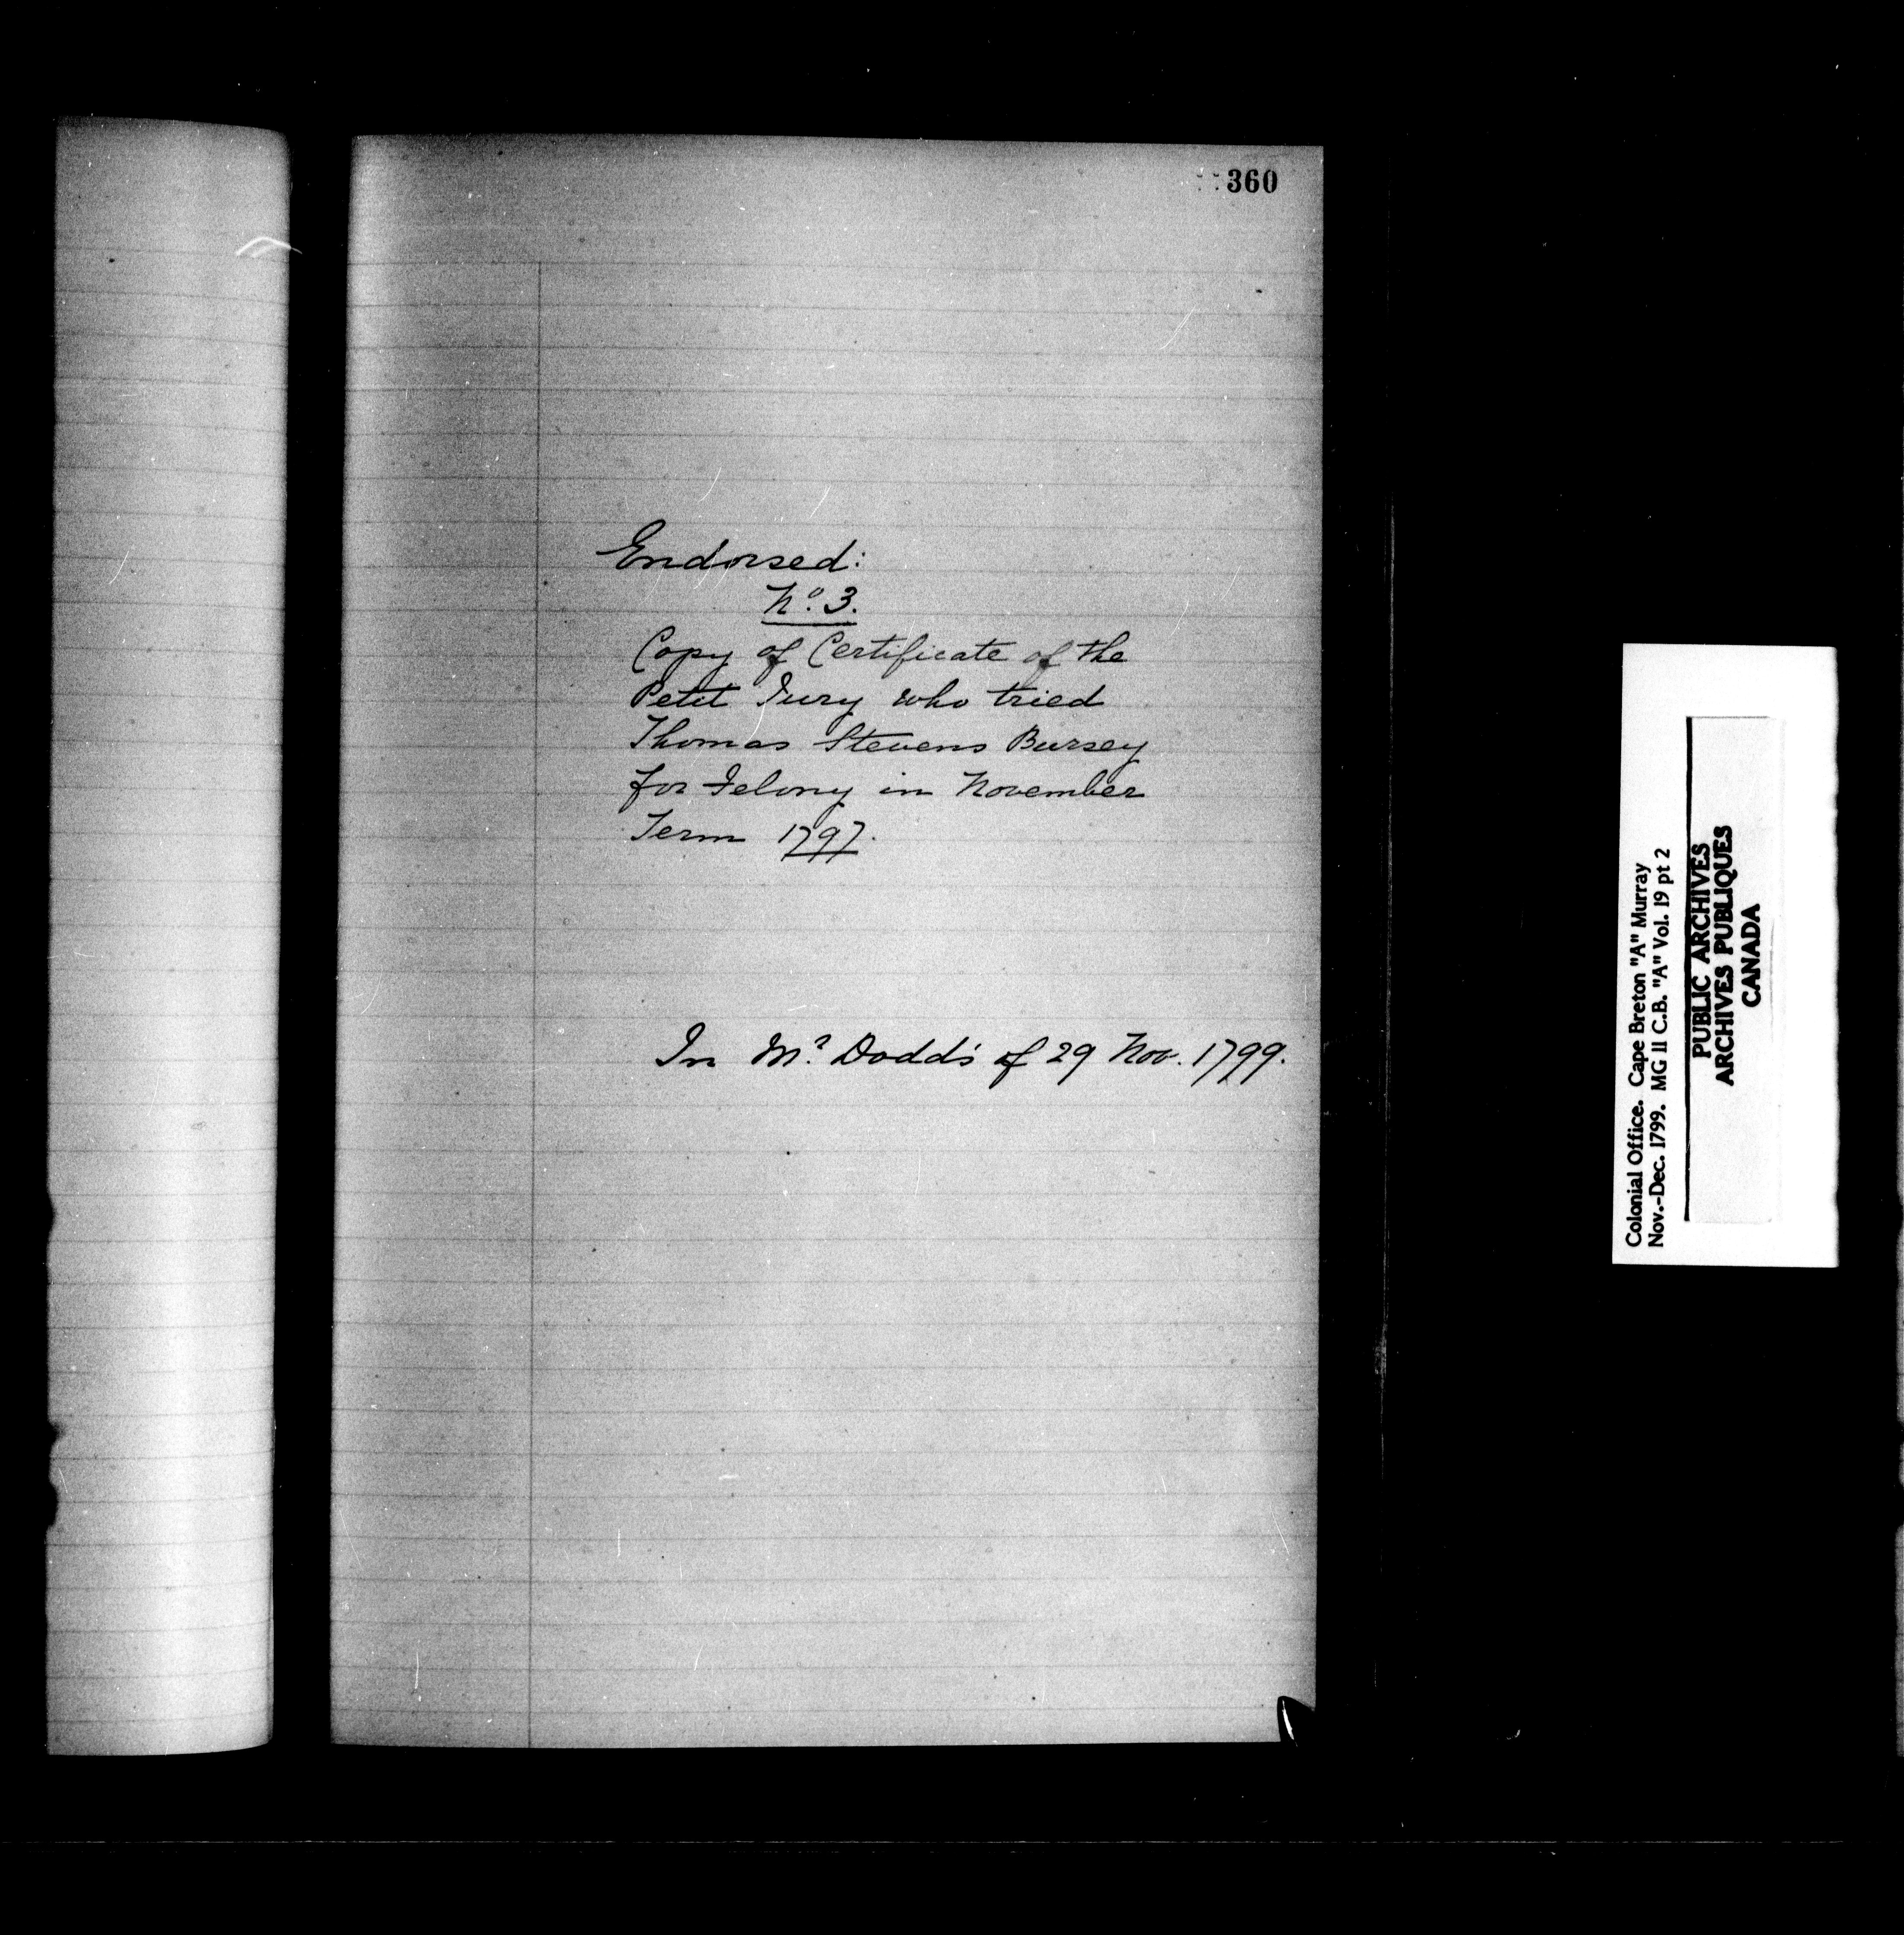 360
Endorsed:
No. 3.
Copy of Certificate of the
Petit Jury who tried
Thomas Stevens Bursey
for Felony in November
Term 1797.
In Mr. Dodd's of 29 Nov. 1799.
Colonial Office. Cape Breton "A" Murray
Nov.-Dec. 1799. MG 11 C.B. "A" Vol. 19 pt 2
PUBLIC ARCHIVES
ARCHIVES PUBLIQUES
CANADA